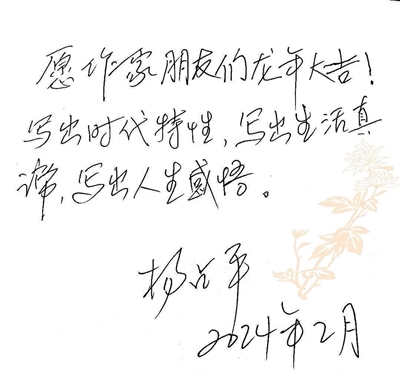 愿作家朋友们龙年大吉！
写出时代特性，写出生活真
谛，写出人生感悟。
杨占平
2024年2月